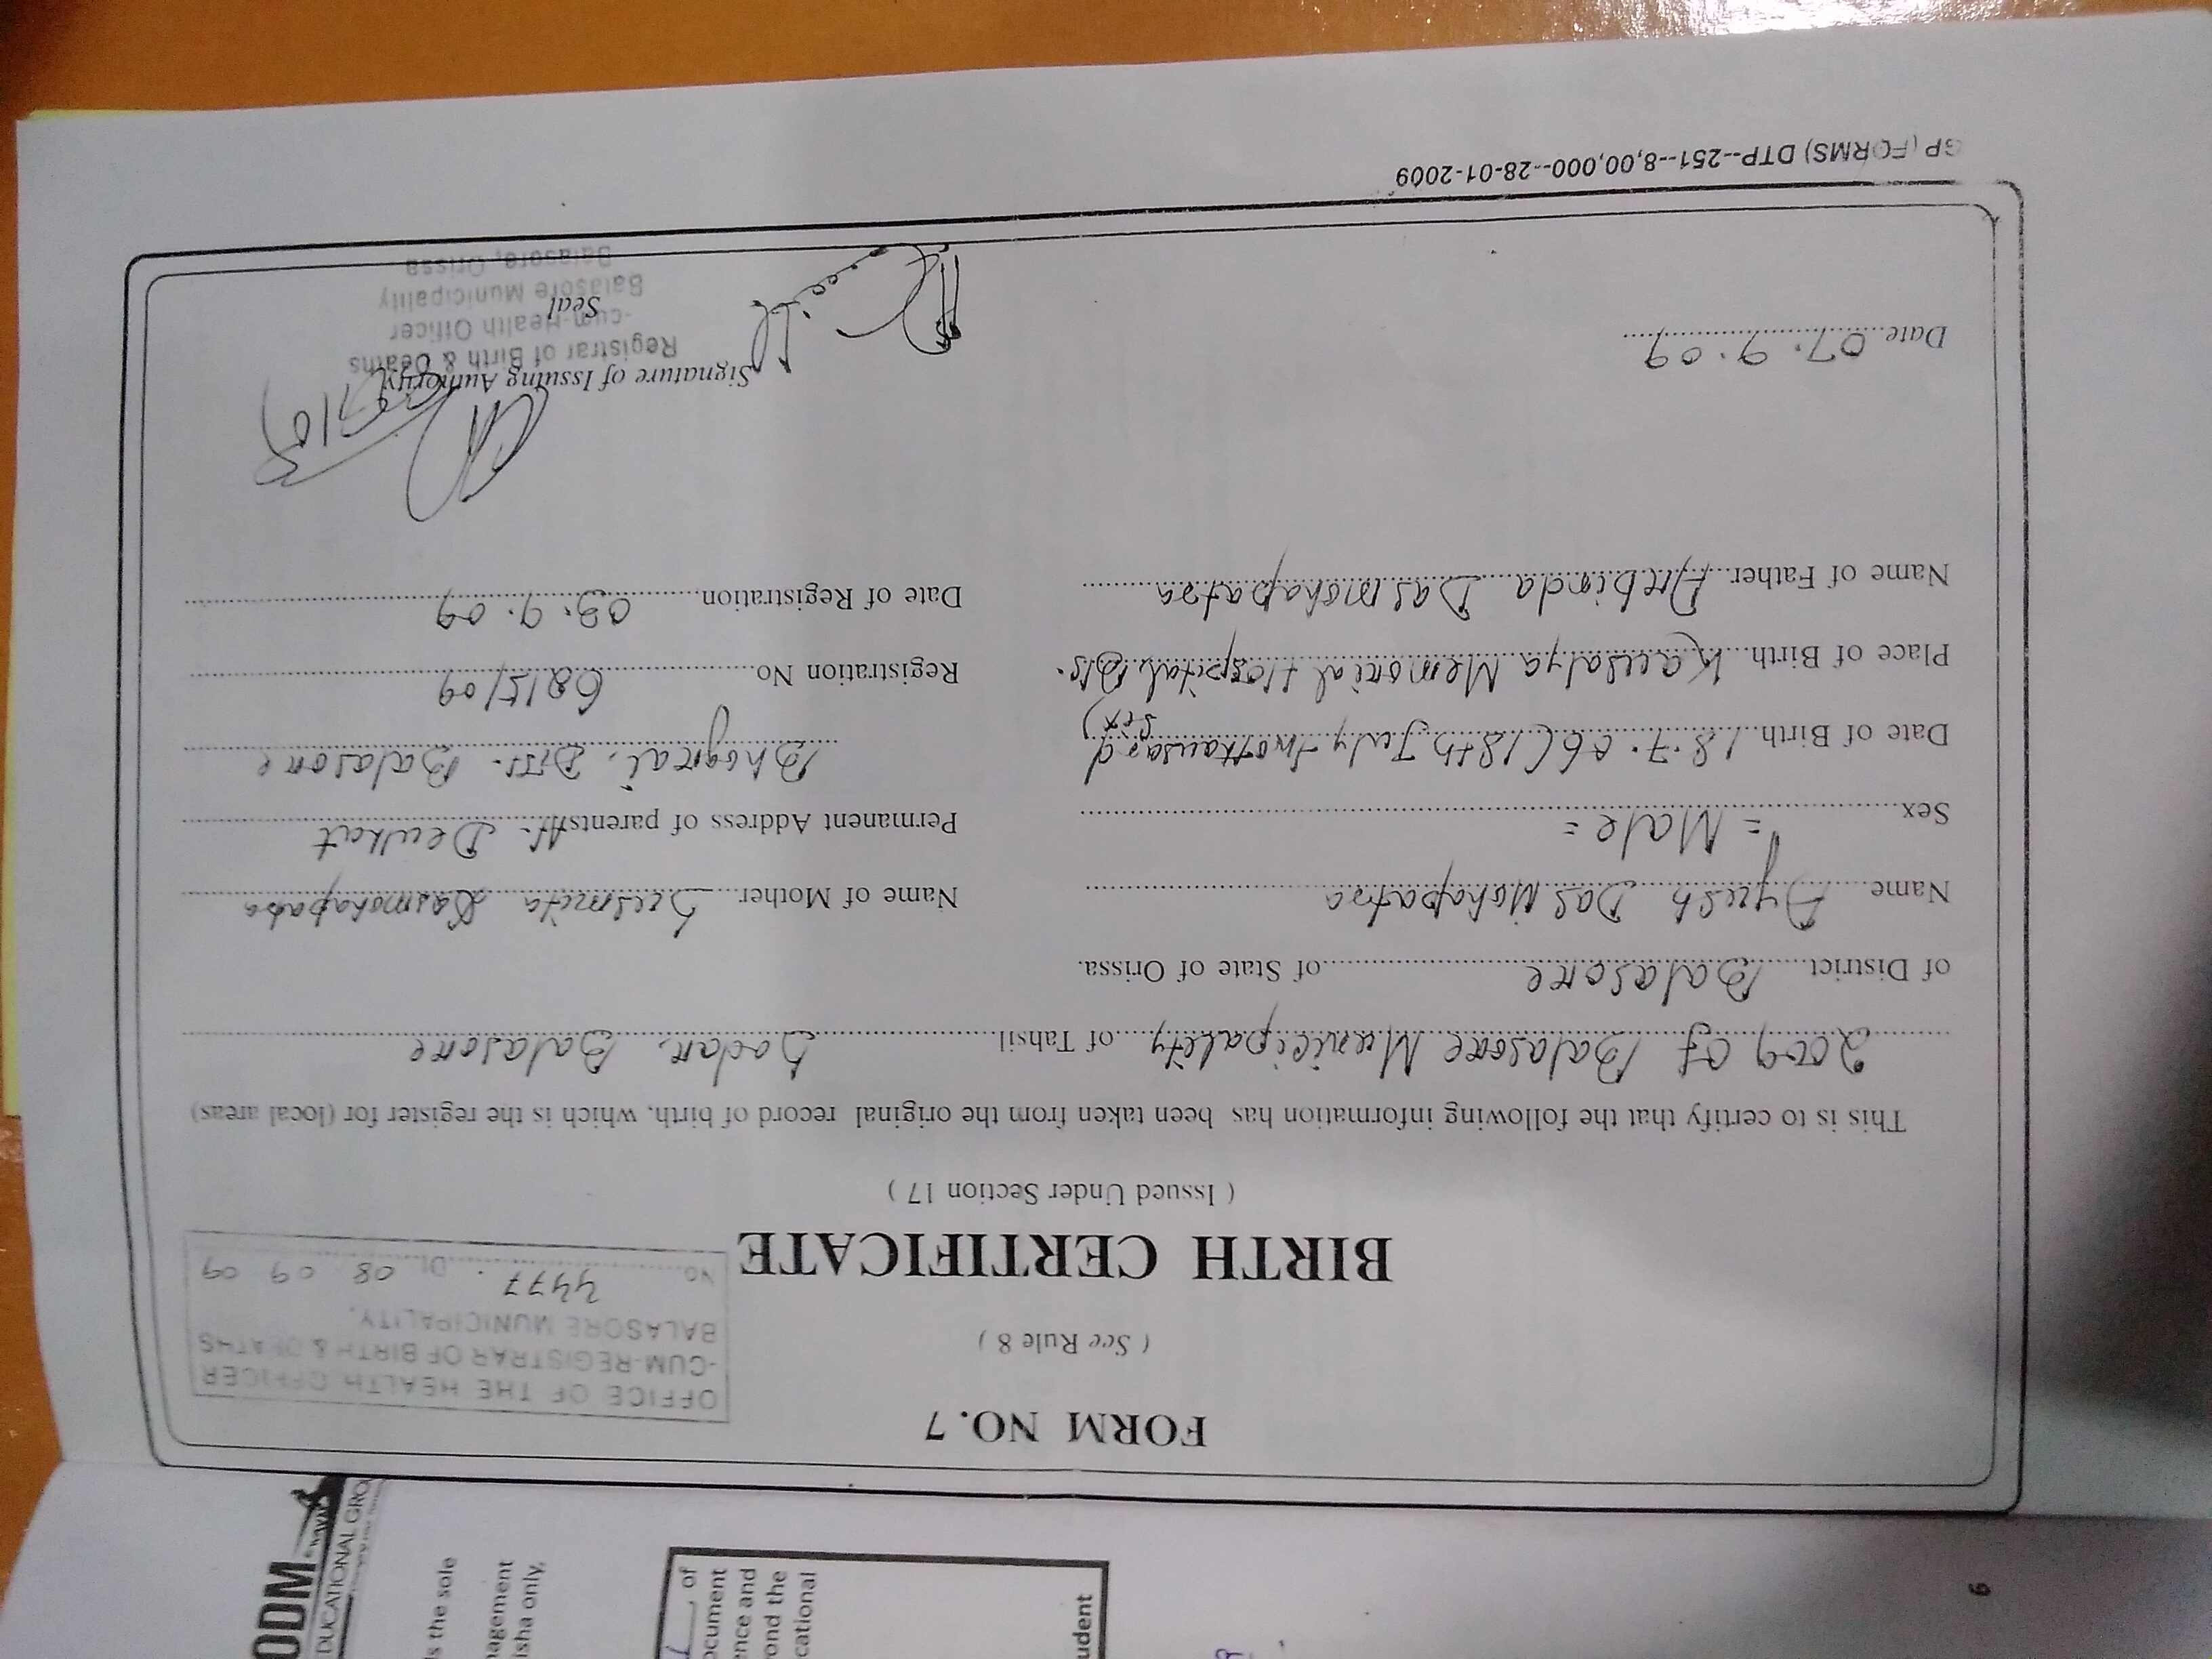 FORM NO. 7
( See Rule 8 )
OFFICE OF THE HEALTH OFFICER
-CUM-REGISTRAR OF BIRTH & DEATHS
BALASORE MUNICIPALITY.
No. 4477 Dt. 08 09 09
BIRTH CERTIFICATE
( Issued Under Section 17 )
This is to certify that the following information has been taken from the original record of birth, which is the register for (local areas)
2009 of Balasore Municipality of Tahsil Sadar, Balasore
of District Balasore of State of Orissa.
Name Ayush Das Mohapatra
Sex = Male =
Date of Birth 18.7.06 (18th July two thousand six)
Place of Birth Kausalya Memorial Hospital, Bls.
Name of Father Arabinda Dasmohapatra
Name of Mother Susmita Dasmohapatra
Permanent Address of parents At. Deuhat
Bhograi, Dist. Balasore
Registration No 6815/09
Date of Registration 03.9.09
Date 07.9.09
Signature of Issuing Authority
Registrar of Birth & Deaths
-cum-Health Officer
Seal
Balasore Municipality
Balasore, Orissa
GP (FORMS) DTP--251--8,00,000--28-01-2009
ODM
EDUCATIONAL GRO
s the sole
nagement
isha only.
, of
ocument
ence and
ond the
cational
udent
6